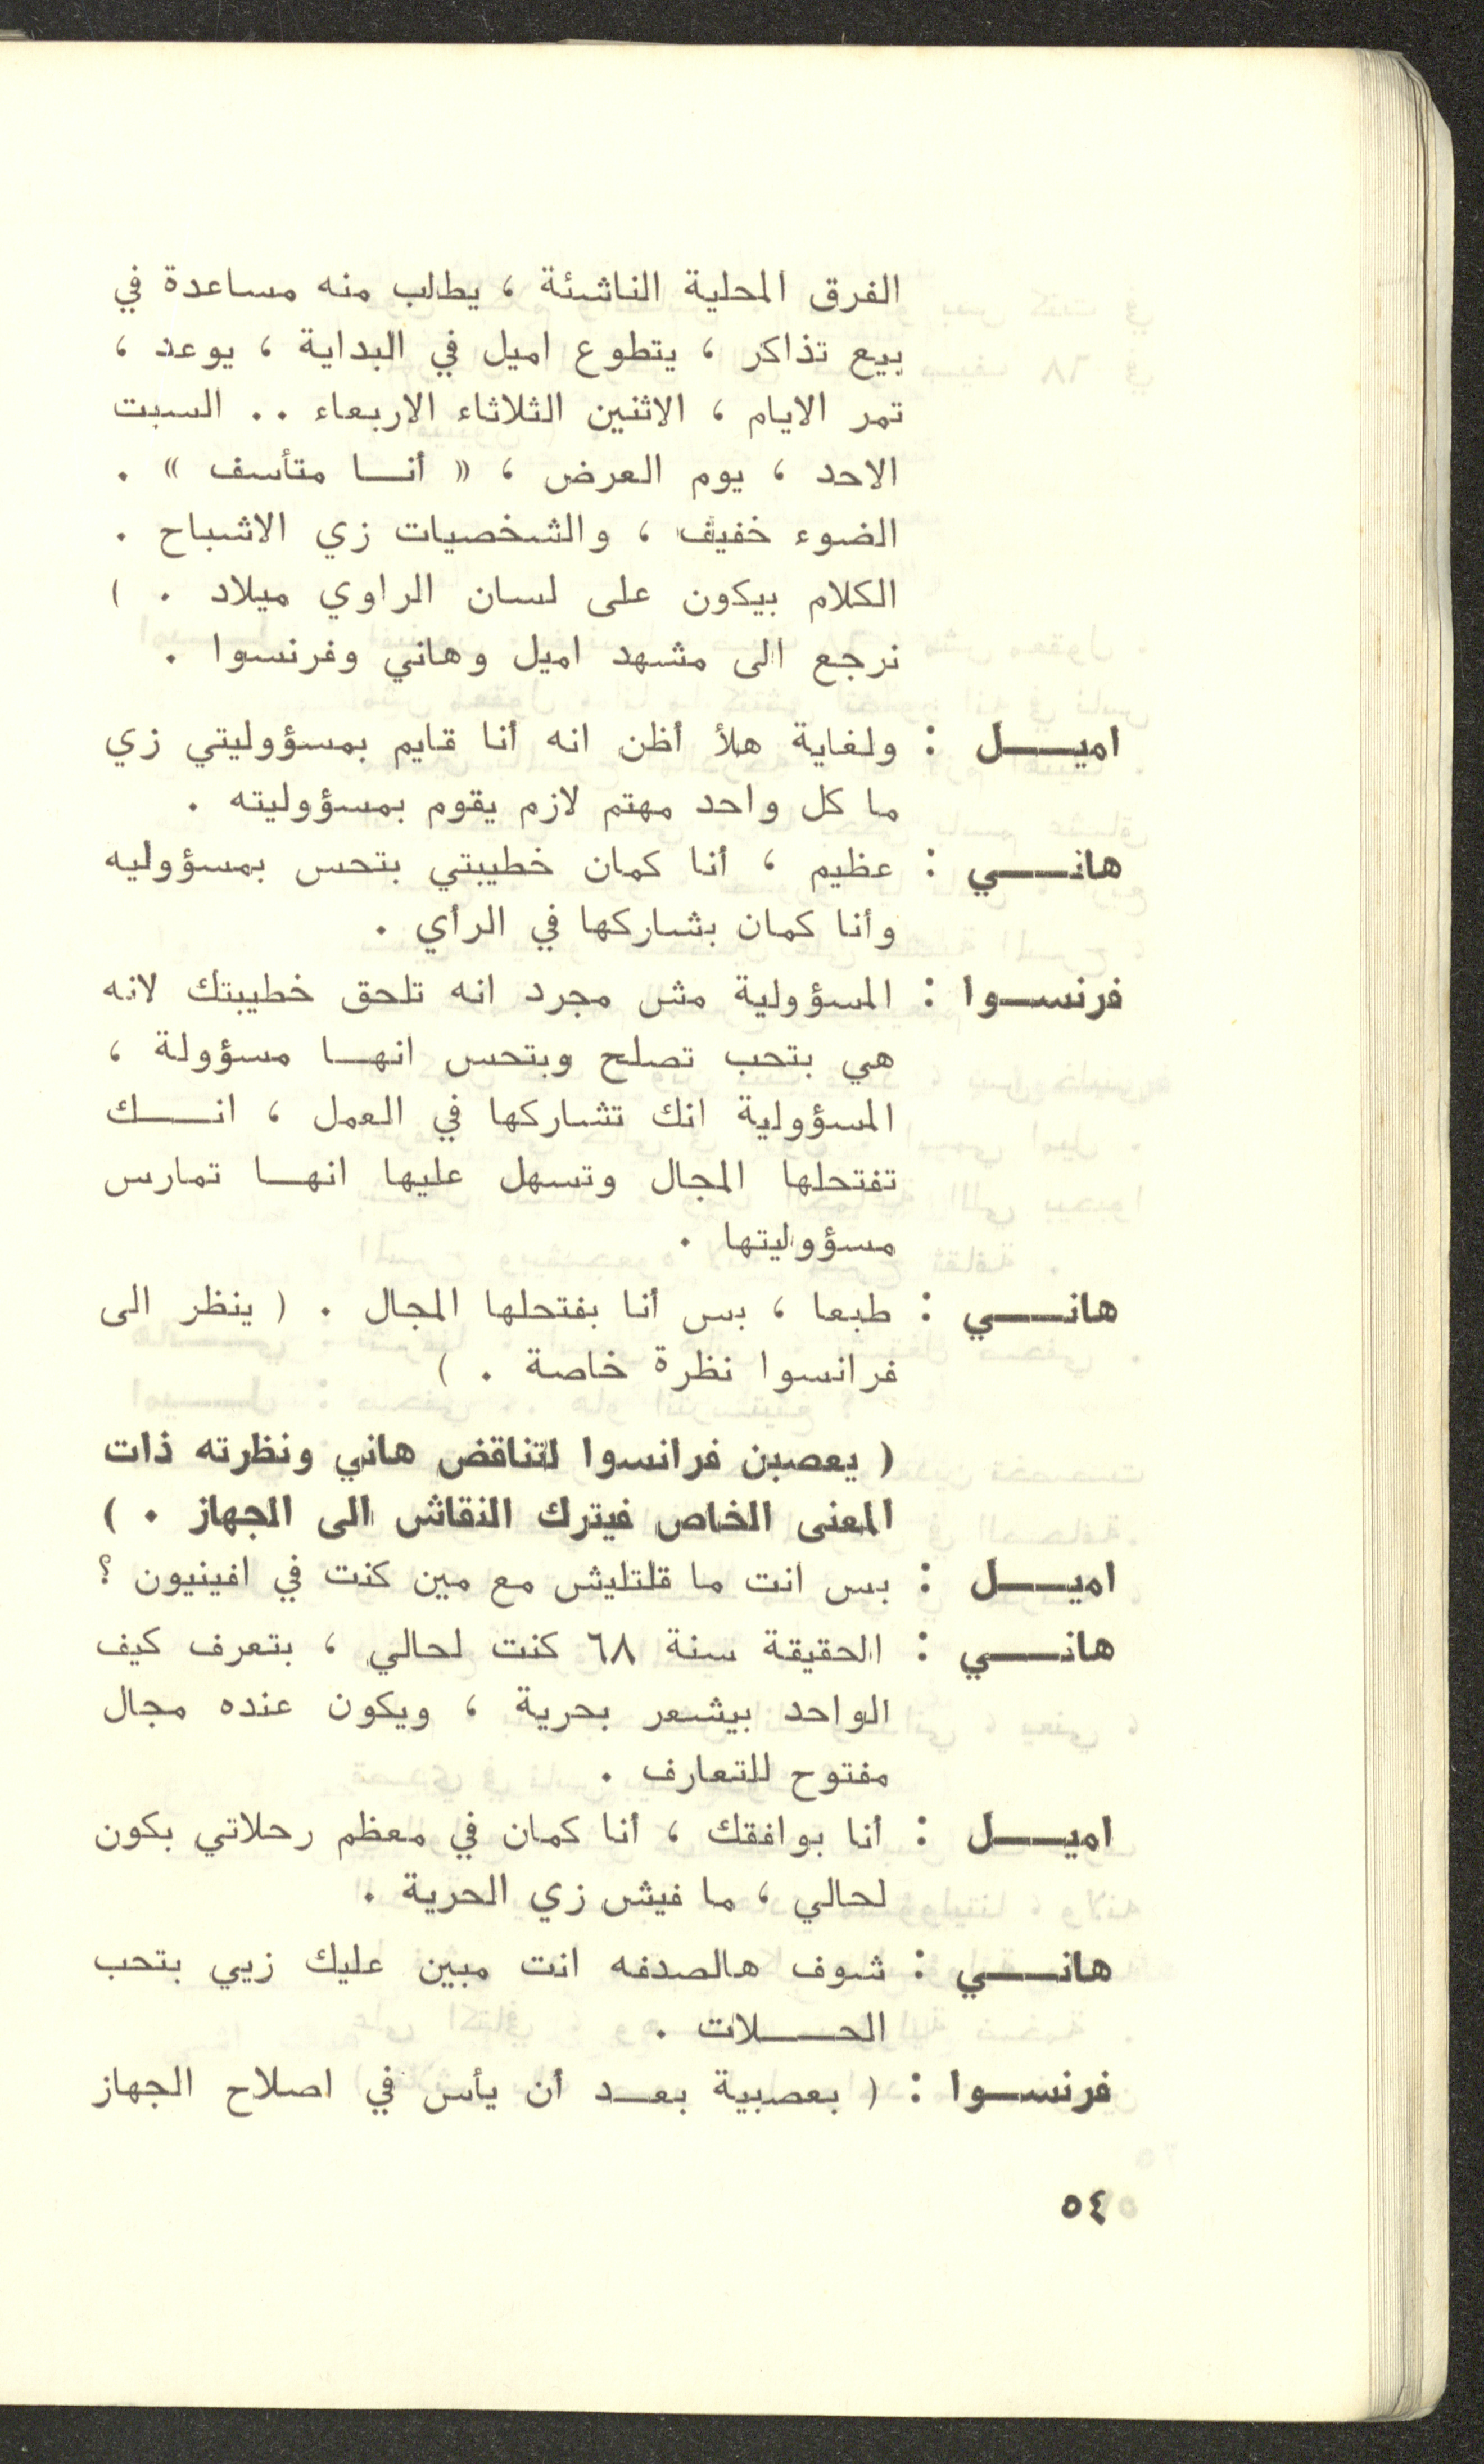 الفرق المحلية الناشئة ، يطلب منه مساعدة في
بيع تذاكر ، يتطوع اميل في البداية ، يوعد ،
تمر الايام ، الاثنين الثلاثاء الاربعاء .. السبت
الاحد ، يوم العرض ، « أنـا متأسف » .
الضوء خفيف ، والشخصيات زي الاشباح .
الكلام بيكون على لسان الراوي ميلاد . )
نرجع الى مشهد اميل وهاني وفرنسوا .
اميـــل : ولغاية هلأ أظن انه أنا قايم بمسؤوليتي زي
ما كل واحد مهتم لازم يقوم بمسؤوليته .
هانـــي : عظيم ، أنا كمان خطيبتي بتحس بمسؤوليه
وأنا كمان بشاركها في الرأي .
فرنســوا : المسؤولية مش مجرد انه تلحق خطيبتك لانه
هي بتحب تصلح وبتحس انهـا مسؤولة ،
المسؤولية انك تشاركها في العمل ، انــك
تفتحلها المجال وتسهل عليها انهـا تمارس
مسؤوليتها .
هانـــي : طبعا ، بس أنا بفتحلها المجال . ( ينظر الى
فرانسوا نظرة خاصة . )
( يعصبن فرانسوا لتناقض هاني ونظرته ذات
المعنى الخاص فيترك النقاش الى الجهاز . )
اميـــل : بس انت ما قلتليش مع مين كنت في افينيون ؟
هانـــي : الحقيقة سنة ٦٨ كنت لحالي ، بتعرف كيف
الواحد بيشعر بحرية ، ويكون عنده مجال
مفتوح للتعارف .
اميـــل : أنا بوافقك ، أنا كمان في معظم رحلاتي بكون
لحالي ، ما فيش زي الحرية .
هانـــي : شوف هالصدفه انت مبين عليك زيي بتحب
الحـــلات .
فرنســوا : ( بعصبية بعـد أن يأس في اصلاح الجهاز
٥٤